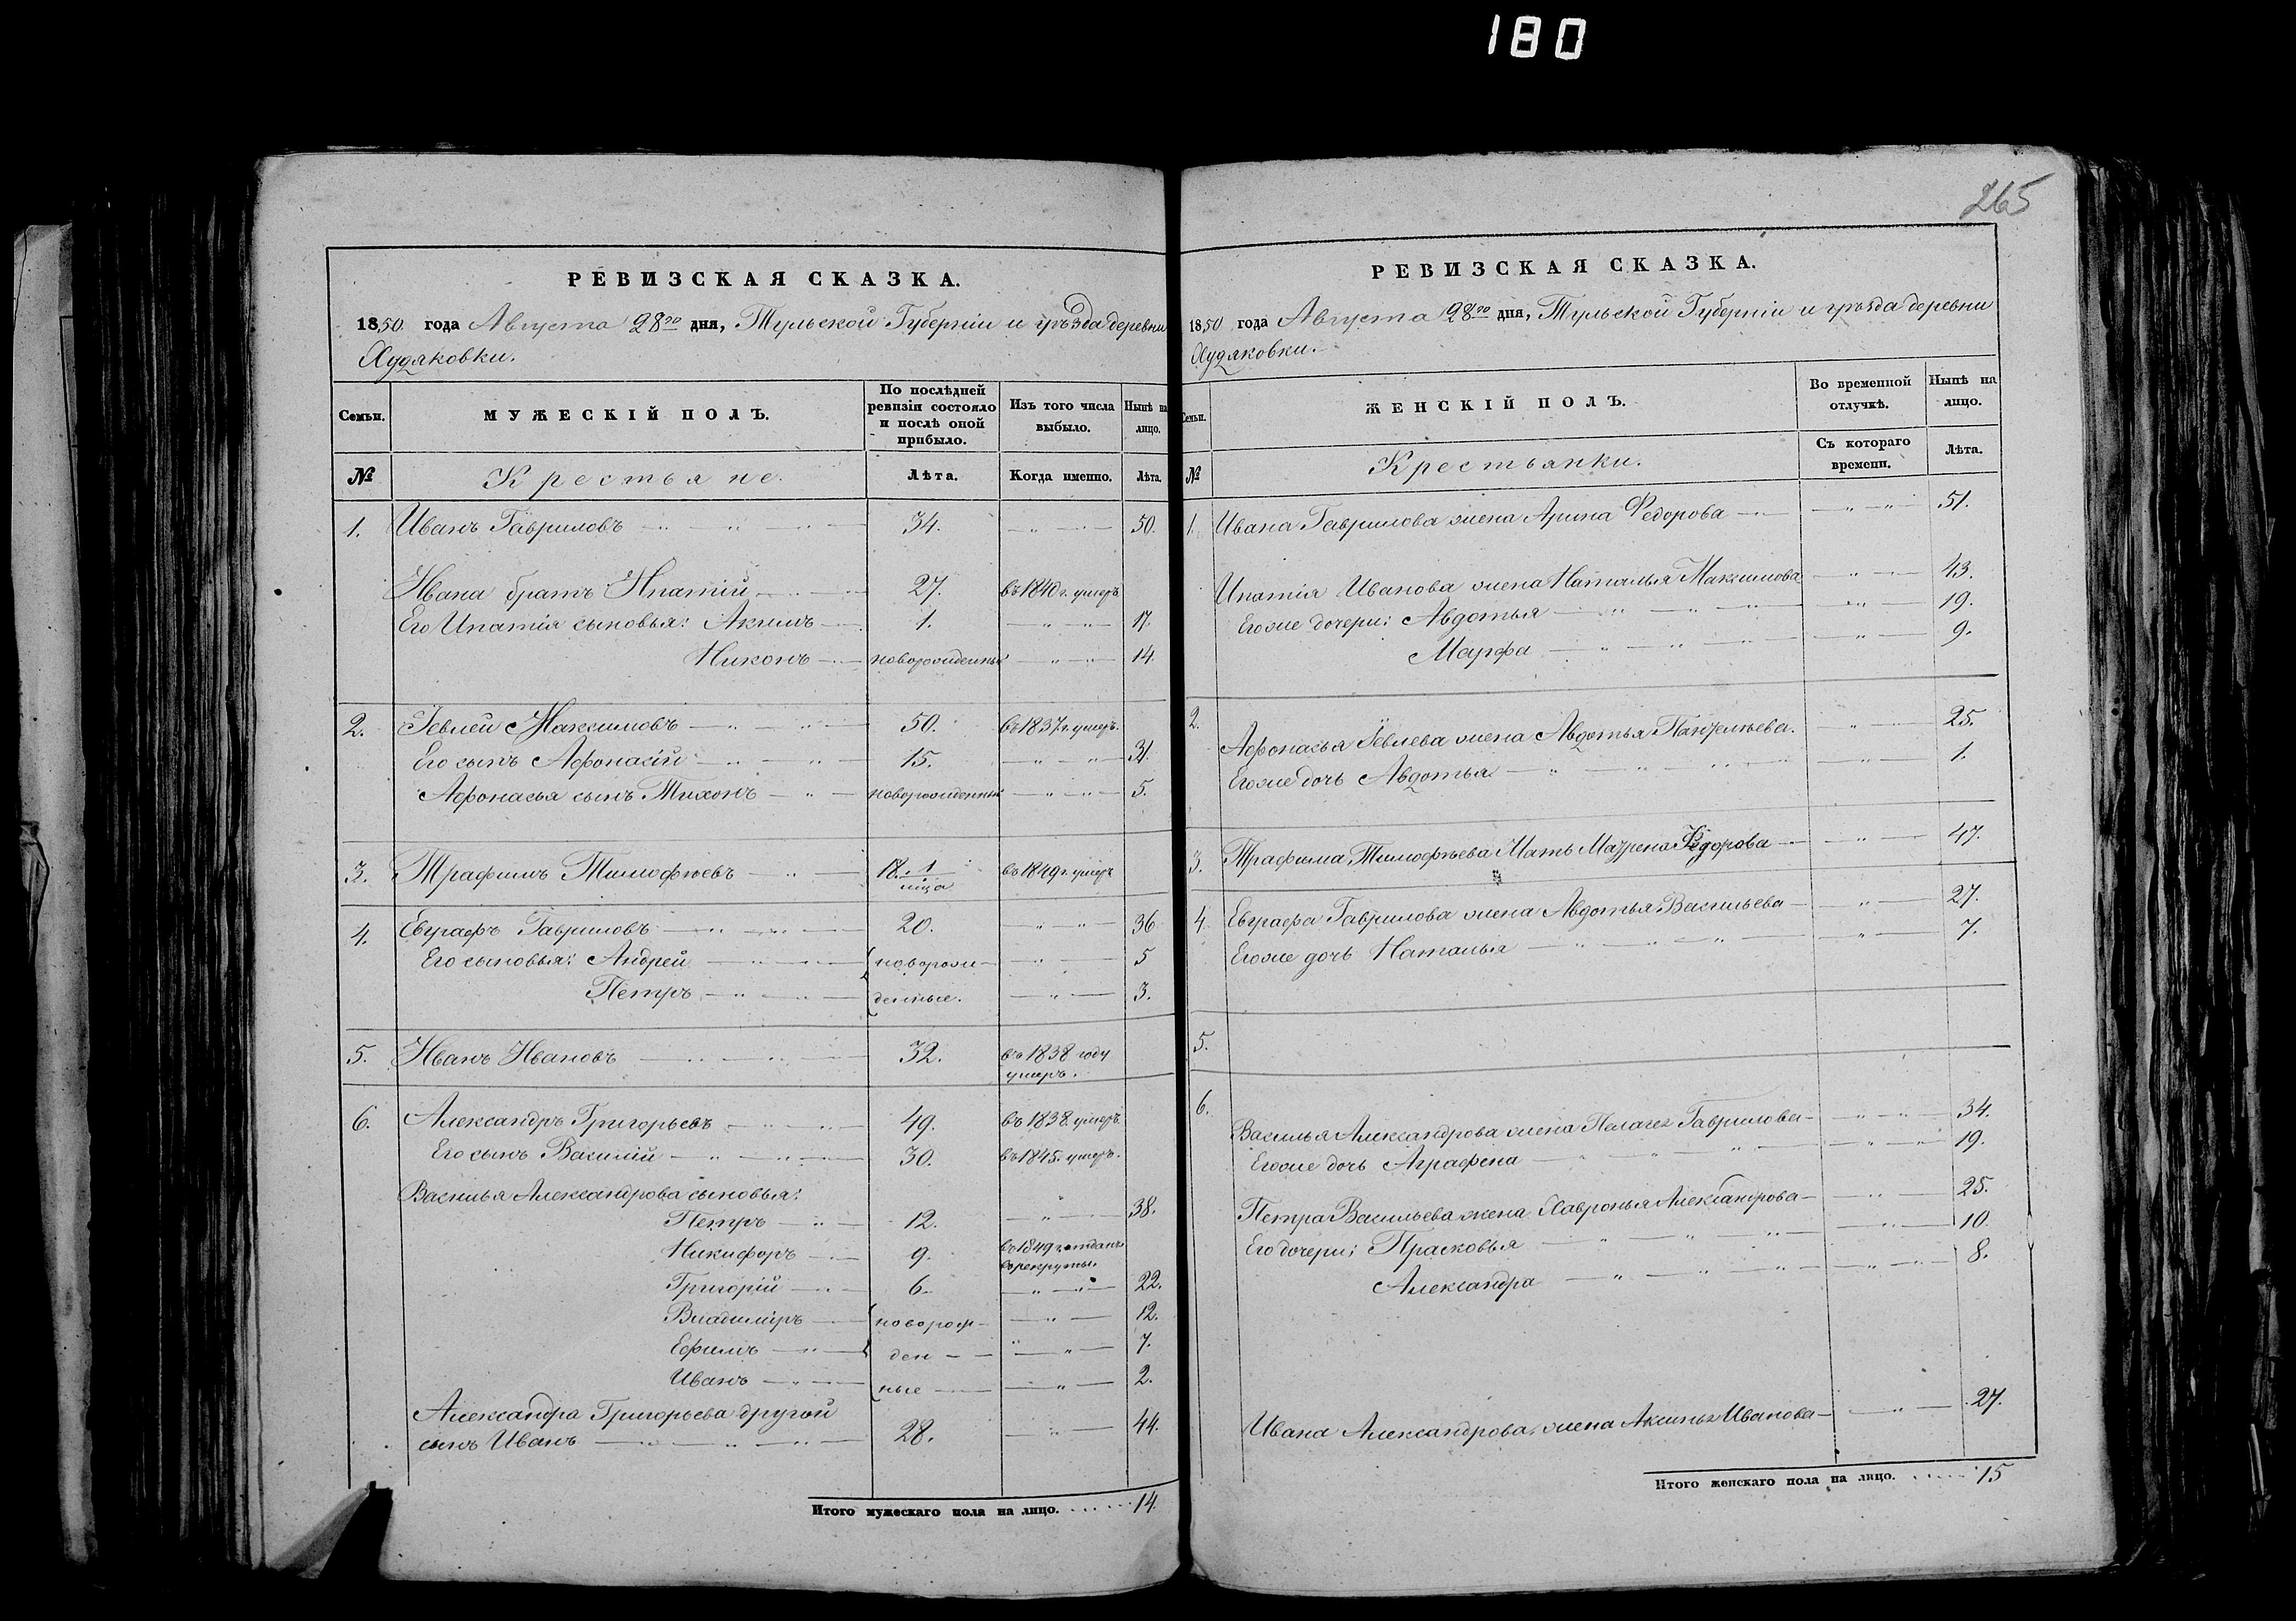 180
РЕВИЗСКАЯ СКАЗКА.
1850. года Августа 28го дня, Тульской Губерніи и уѣзда деревни
Худяковки.
Семьи.
МУЖЕСКІЙ ПОЛЪ.
По послѣдней
ревизіи состояло
и послѣ оной
прибыло.
Изъ того числа
выбыло.
Нынѣ на
лицо.
№
Крестьяне.
Лѣта.
Когда именно.
Лѣта.
1. Иванъ Гавриловъ 34. 50.
Ивана братъ Ипатій 27. въ 1840 г. умеръ
Его Ипатія сыновья: Акимъ 1. 17.
Никонъ новорожденный 14.
2. Іевлей Максимовъ 50. въ 1837 г. умеръ.
Его сынъ Афонасій 15. 31.
Афонасья сынъ Тихонъ новорожденный 5.
3. Трафимъ Тимофѣевъ 18. 1 въ 1849 г. умеръ
4. Евграфъ Гавриловъ 20. 36
Его сыновья: Андрей новорож- 5
Петръ денные. 3.
5. Иванъ Ивановъ 32. въ 1838 году
умеръ.
6. Александръ Григорьевъ 49. въ 1838. умеръ.
Его сынъ Василій 30. въ 1845. умеръ.
Василья Александрова сыновья:
Петръ 12. 38.
Никифоръ 9. въ 1849 г. отданъ
в рекруты.
Григорій 6. 22.
Владиміръ новорож- 12.
Ефимъ ден 7.
Иванъ ные 2.
Александра Григорьева другой
сынъ Иванъ 28. 44.
Итого мужескаго пола на лицо. 14.
265
РЕВИЗСКАЯ СКАЗКА.
1850 года Августа 28го дня, Тульской Губерніи и уѣзда деревни
Худяковки.
Семьи.
ЖЕНСКІЙ ПОЛЪ.
Во временной
отлучкѣ.
Нынѣ на
лицо.
№
Крестьянки.
Съ котораго
времени.
Лѣта.
1. Ивана Гаврилова жена Арина Федорова 51.
Ипатія Иванова жена Наталья Максимова 43.
Его же дочери: Авдотья 19.
Марфа 9.
2. Афонасья Іевлева жена Авдотья Пантелѣева. 25.
Его же дочь Авдотья 1.
3. Трафима Тимофѣева Мать Мавренa Федорова 47.
4 Евграфа Гаврилова жена Авдотья Васильева 27.
Его же дочь Наталья 7.
5.
6. Василья Александрова жена Пелагея Гаврилова 34.
Его же дочь Аграфена 19.
Петра Васильева жена Хавронья Александрова 25.
Его дочери: Прасковья 10.
Александра 8.
Ивана Александрова жена Аксинья Иванова 27.
Итого женскаго пола на лицо. 15